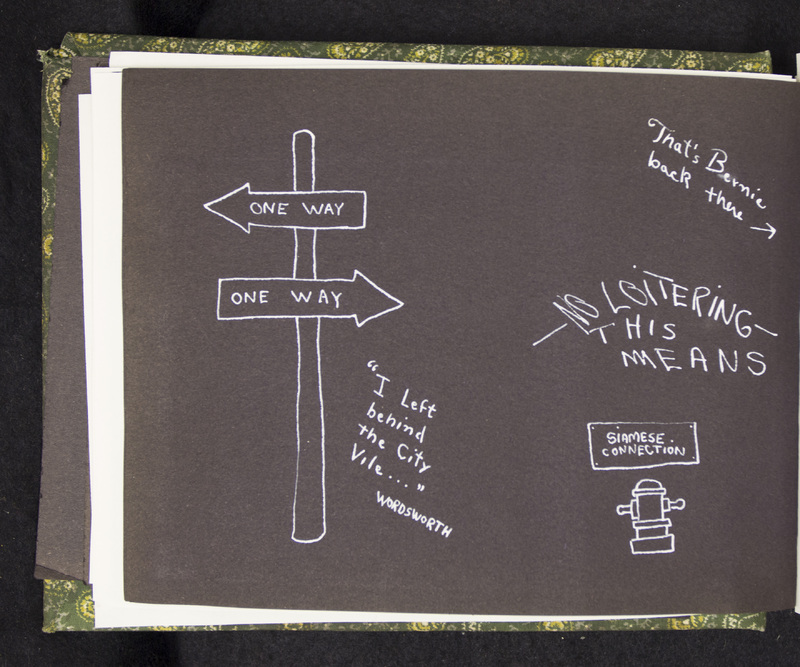 ONE WAY
ONE WAY
"I Left
behind
the City
Vile..."
WORDSWORTH
That's Bernie
back there →
NO LOITERING
THIS
MEANS
SIAMESE
CONNECTION